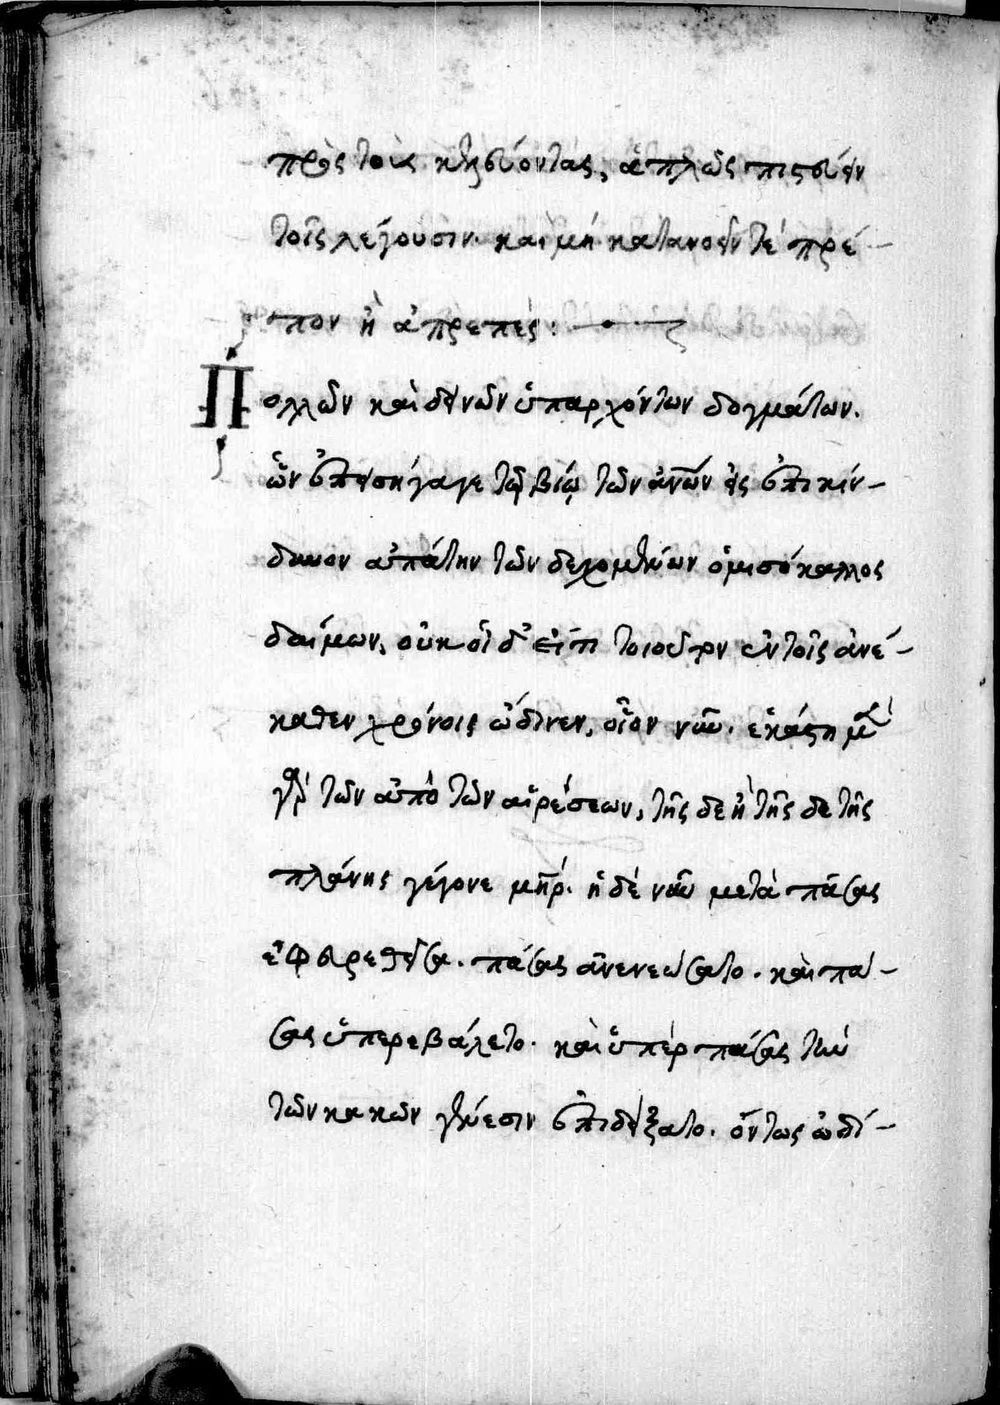 πρὸς τοὺς κηρύοντας, ἁπλῶς πιστεύειν
τοῖς λέγουσιν. καὶ μὴ κατανοεῖν τὲ πρέ-
πον ἢ ἀπρεπές:
Πολλῶν καὶ δεινῶν ὑπαρχόντων δογμάτων.
ὧν ἐπεισήγαγε τῷ βίῳ τῶν ἀνῶν εἰς ἐπικίν-
δυνον ἀπάτην τῶν δεχομένων ὁ μισόκαλλος
δαίμων, οὐκ οἶδ' εἴ τι τοιοῦτον ἐν τοῖς ἀνέ-
καθεν χρόνοις ὤδινεν, οἷον νῦν. ἑκάστη μὲν
γὰρ τῶν ἀπὸ τῶν αἱρέσεων, τῆς δε ἢ τῆς δε τῆς
πλάνης γέγονε μηρ. ἡ δὲ νῦν μετὰ πάσας
ἐφευρεθεῖσα. πάσας ἀνενεώσατο. καὶ πά-
σας ὑπερεβάλετο. καὶ ὑπὲρ πάσας τὴν
τῶν κακῶν γένεσιν ἐπιδείξατο. ὄντως ὠδί-